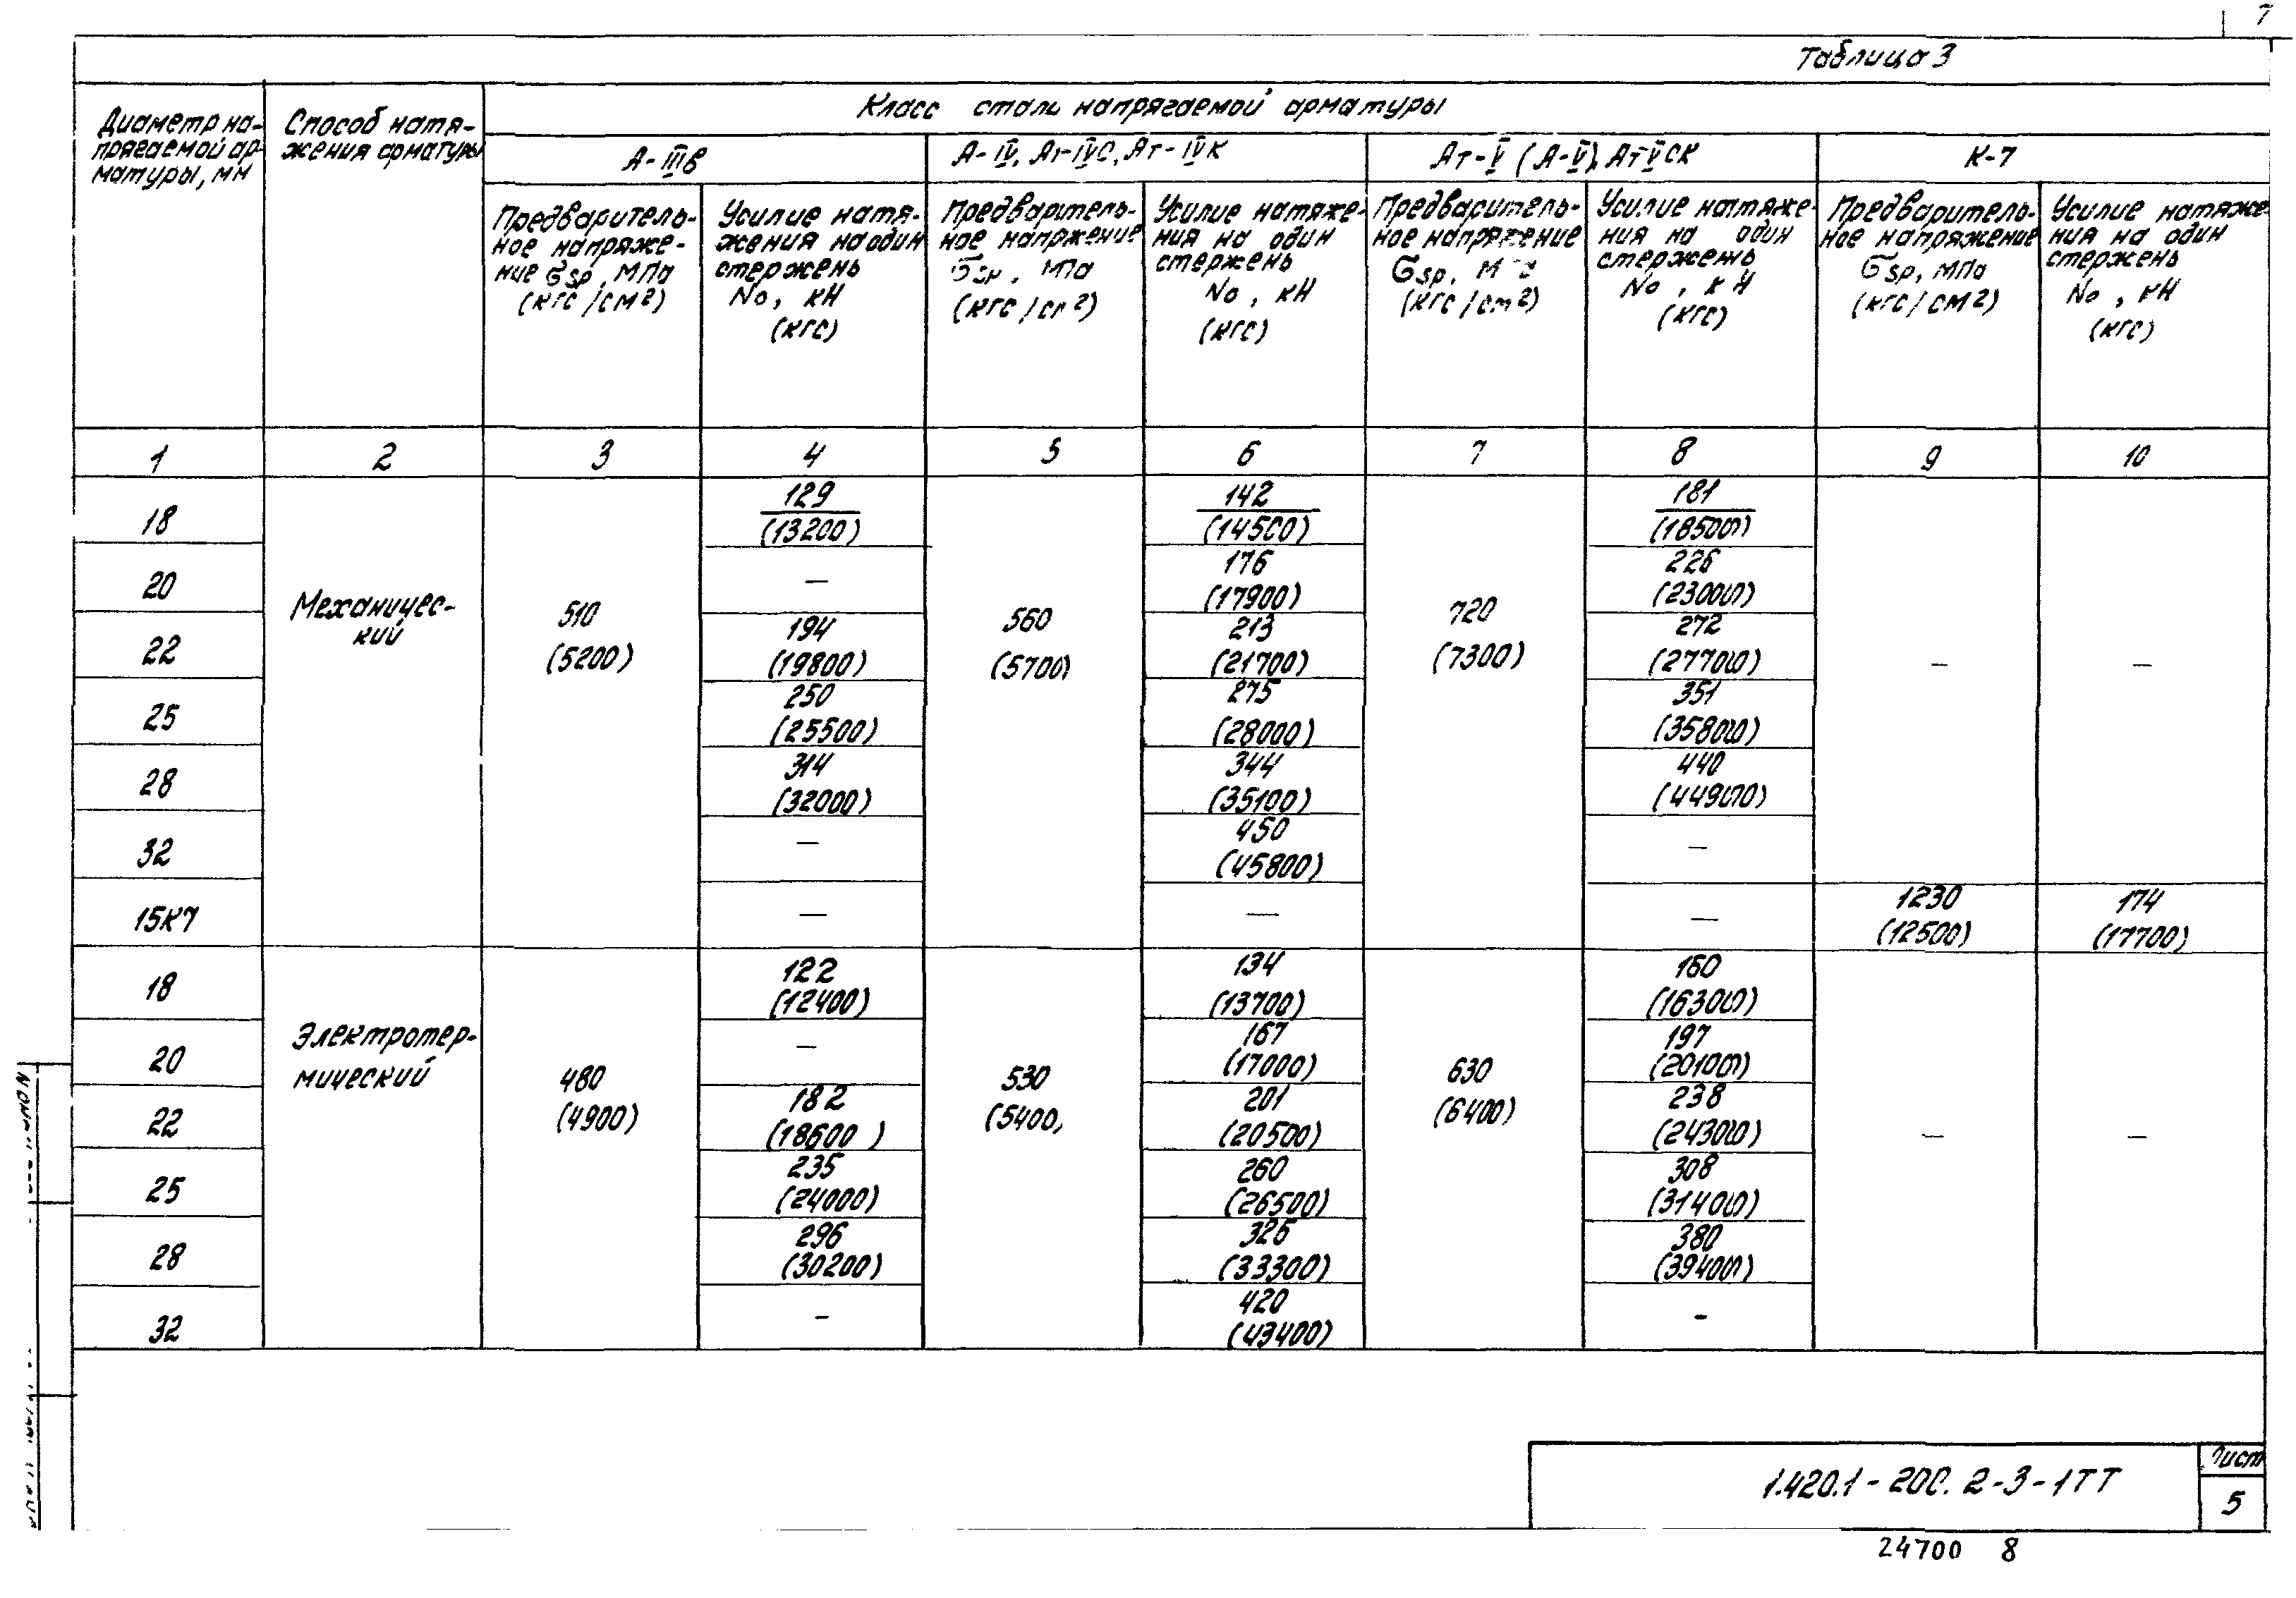 7
Таблица 3
Диаметр на-
прягаемой ар-
матуры, мм
Способ натя-
жения арматуры
Класс стали напрягаемой арматуры
А-IIIв
А-IV, Ат-IVС, Ат-IVК
Ат-V (А-V), АтVСК
К-7
Предваритель-
ное напряже-
ние σsp, МПа
(кгс/см²)
Усилие натя-
жения на один
стержень
No, кН
(кгс)
Предваритель-
ное напржение
σsp, МПа
(кгс/см²)
Усилие натяже-
ния на один
стержень
No, кН
(кгс)
Предваритель-
ное напряжение
σsp, МПа
(кгс/см²)
Усилие натяже-
ния на один
стержень
No, кН
(кгс)
Предваритель-
ное напряжение
σsp, МПа
(кгс/см²)
Усилие натяже-
ния на один
стержень
No, кН
(кгс)
1 2 3 4 5 6 7 8 9 10
18 129 142 181
(13200) (14500) (18500)
20 — 176 226
(17900) (23000)
Механичес-
кий
510 560 720
(5200) (5700) (7300)
22 194 213 272 — —
(19800) (21700) (27700)
25 250 275 351
(25500) (28000) (35800)
28 314 344 440
(32000) (35100) (44900)
32 — 450 —
(45800)
15К7 — — — 1230 174
(12500) (17700)
18 122 134 160
(12400) (13700) (16300)
Электротер-
мический
20 — 167 197
(17000) (20100)
480 530 630
(4900) (5400) (6400)
22 182 201 238 — —
(18600) (20500) (24300)
25 235 260 308
(24000) (26500) (31400)
28 296 326 380
(30200) (33300) (39400)
32 — 420 —
(43400)
1.420.1-20С. 2-3-1ТТ
Лист
5
24700 8